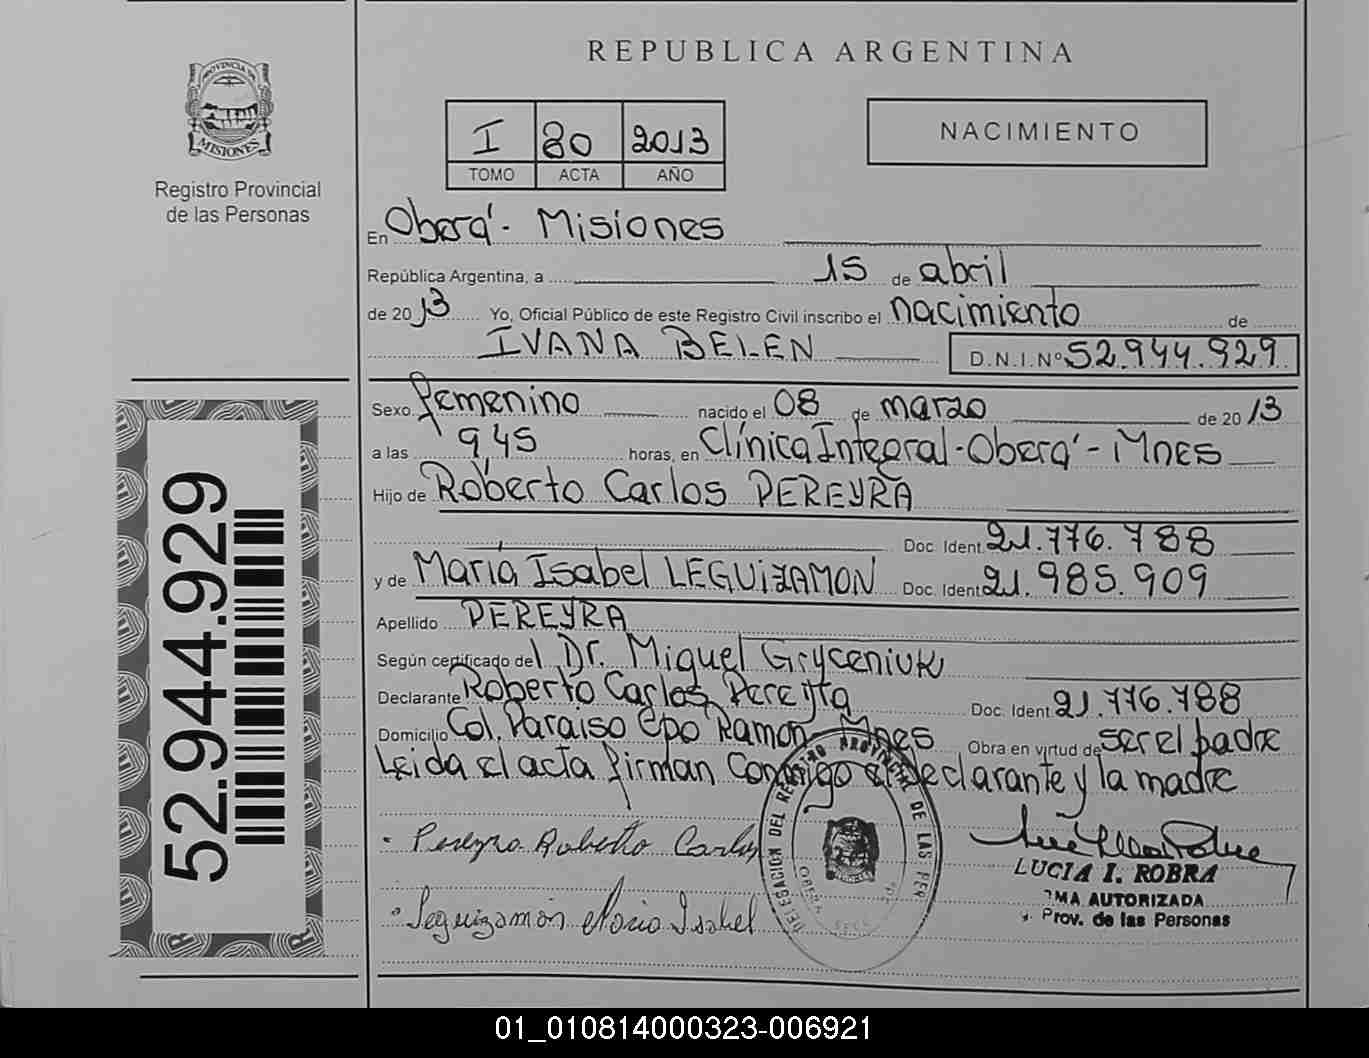 REPUBLICA ARGENTINA
PROVINCIA DE
MISIONES
Registro Provincial
de las Personas
I 80 2013
TOMO ACTA AÑO
NACIMIENTO
En Oberá - Misiones
República Argentina, a 15 de abril
de 2013 Yo, Oficial Público de este Registro Civil inscribo el nacimiento de
IVANA BELEN D.N.I. Nº 52.944.929
Sexo femenino nacido el 08 de marzo de 2013
a las 9 45 horas, en Clínica Integral - Oberá - Mnes
Hijo de Roberto Carlos PEREYRA
Doc. Ident. 21.776.788
y de María Isabel LEGUIZAMON Doc. Ident. 21.985.909
Apellido PEREYRA
Según certificado del Dr. Miguel Gryceniuk
Declarante Roberto Carlos Pereyra Doc. Ident. 21.776.788
Domicilio Col. Paraiso Cpo Ramon Mnes Obra en virtud de ser el padre
Leida el acta firman conmigo el declarante y la madre
Pereyra Roberto Carlos
Leguizamón Maria Isabel
DELEGACION DEL REGISTRO PROVINCIAL DE LAS PER
OBERA
LUCIA I. ROBRA
MA AUTORIZADA
Prov. de las Personas
52.944.929
01_010814000323-006921